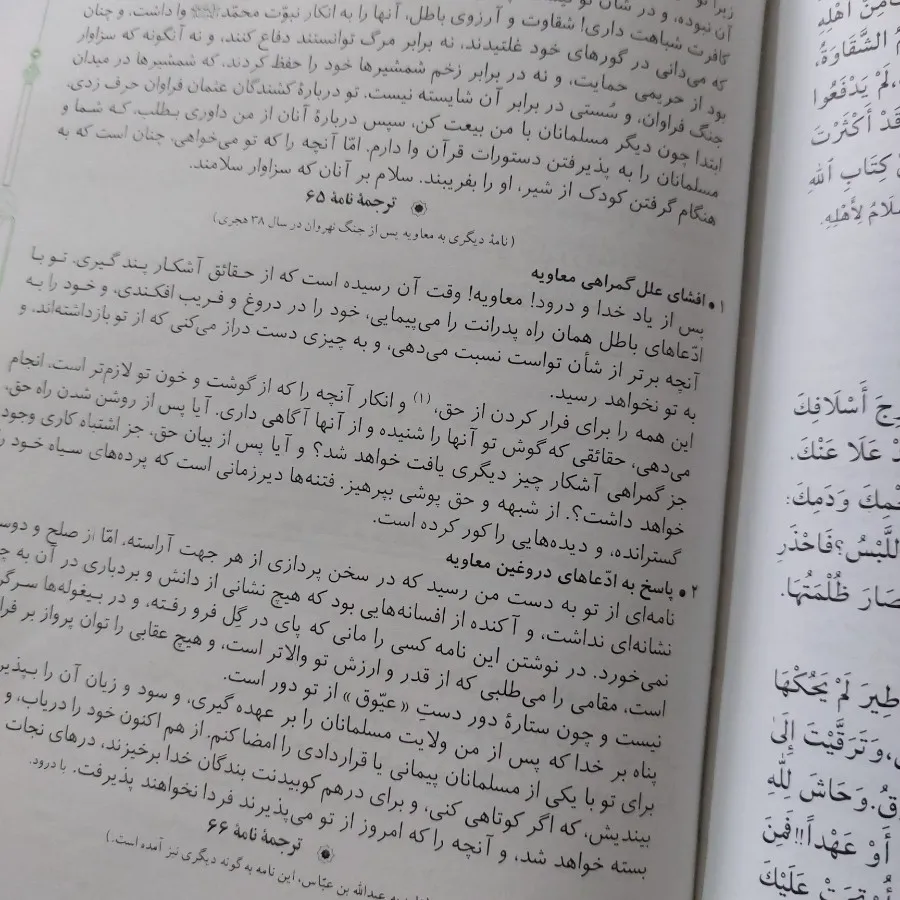 زیرا تو
آن نبوده، و در شأن تو نیست
کافرت شباهت داری! شقاوت و آرزوی باطل، آنها را به انکار نبوّت محمّد ﷺ واداشت، و چنان
که می‌دانی در گورهای خود غلتیدند، نه برابر مرگ توانستند دفاع کنند، و نه آنگونه که سزاوار
بود از حریمی حمایت، و نه در برابر زخم شمشیرها خود را حفظ کردند، که شمشیرها در میدان
جنگ فراوان، و سُستی در برابر آن شایسته نیست. تو دربارهٔ کشندگان عثمان فراوان حرف زدی،
ابتدا چون دیگر مسلمانان با من بیعت کن، سپس دربارهٔ آنان از من داوری بطلب، که شما و
مسلمانان را به پذیرفتن دستورات قرآن وا دارم. امّا آنچه را که تو می‌خواهی، چنان است که به
هنگام گرفتن کودک از شیر، او را بفریبند. سلام بر آنان که سزاوار سلامند.
ترجمهٔ نامهٔ ۶۵
(نامهٔ دیگری به معاویه پس از جنگ نهروان در سال ۳۸ هجری)
۱ • افشای علل گمراهی معاویه
پس از یاد خدا و درود! معاویه! وقت آن رسیده است که از حقائق آشکار پند گیری. تو با
ادّعاهای باطل همان راه پدرانت را می‌پیمایی، خود را در دروغ و فریب افکندی، و خود را به
آنچه برتر از شأن تواست نسبت می‌دهی، و به چیزی دست دراز می‌کنی که از تو بازداشته‌اند، و
به تو نخواهد رسید.
این همه را برای فرار کردن از حق، (۱) و انکار آنچه را که از گوشت و خون تو لازم‌تر است، انجام
می‌دهی، حقائقی که گوش تو آنها را شنیده و از آنها آگاهی داری. آیا پس از روشن شدن راه حق،
جز گمراهی آشکار چیز دیگری یافت خواهد شد؟ و آیا پس از بیان حق، جز اشتباه کاری وجود
خواهد داشت؟. از شبهه و حق پوشی بپرهیز. فتنه‌ها دیرزمانی است که پرده‌های سیاه خود را
گسترانده، و دیده‌هایی را کور کرده است.
۲ • پاسخ به ادّعاهای دروغین معاویه
نامه‌ای از تو به دست من رسید که در سخن پردازی از هر جهت آراسته، امّا از صلح و دوس
نشانه‌ای نداشت، و آکنده از افسانه‌هایی بود که هیچ نشانی از دانش و بردباری در آن به چ
نمی‌خورد. در نوشتن این نامه کسی را مانی که پای در گِل فرو رفته، و در بیغوله‌ها سرگر
است، مقامی را می‌طلبی که از قدر و ارزش تو والاتر است، و هیچ عقابی را توان پرواز بر فرا
نیست و چون ستارهٔ دور دستِ «عیّوق» از تو دور است.
پناه بر خدا که پس از من ولایت مسلمانان را بر عهده گیری، و سود و زیان آن را بپذیر
برای تو با یکی از مسلمانان پیمانی یا قراردادی را امضا کنم. از هم اکنون خود را دریاب، و
بیندیش، که اگر کوتاهی کنی، و برای درهم کوبیدنت بندگان خدا برخیزند، درهای نجات
بسته خواهد شد، و آنچه را که امروز از تو می‌پذیرند فردا نخواهند پذیرفت. با درود.
ترجمهٔ نامهٔ ۶۶
به عبدالله بن عبّاس، این نامه به گونه دیگری نیز آمده است.)
أَهْلِهِ
الشَّقَاوَةُ،
لَمْ يَدْفَعُوا
قَدْ أَكْثَرْتَ
كِتَابِ ٱللهِ
لِأَهْلِهِ.
أَسْلَافِكَ
عَلَا عَنْكَ.
وَدَمِكَ؛
اللَّبْسُ؟ فَاحْذَرِ
ظُلْمَتُهَا.
لَمْ يَحُكْهَا
وَتَرَقَّيْتَ إِلَىٰ
وَحَاشَ لِلّٰهِ
أَوْ عَهْداً!! فَمِنَ
عَلَيْكَ